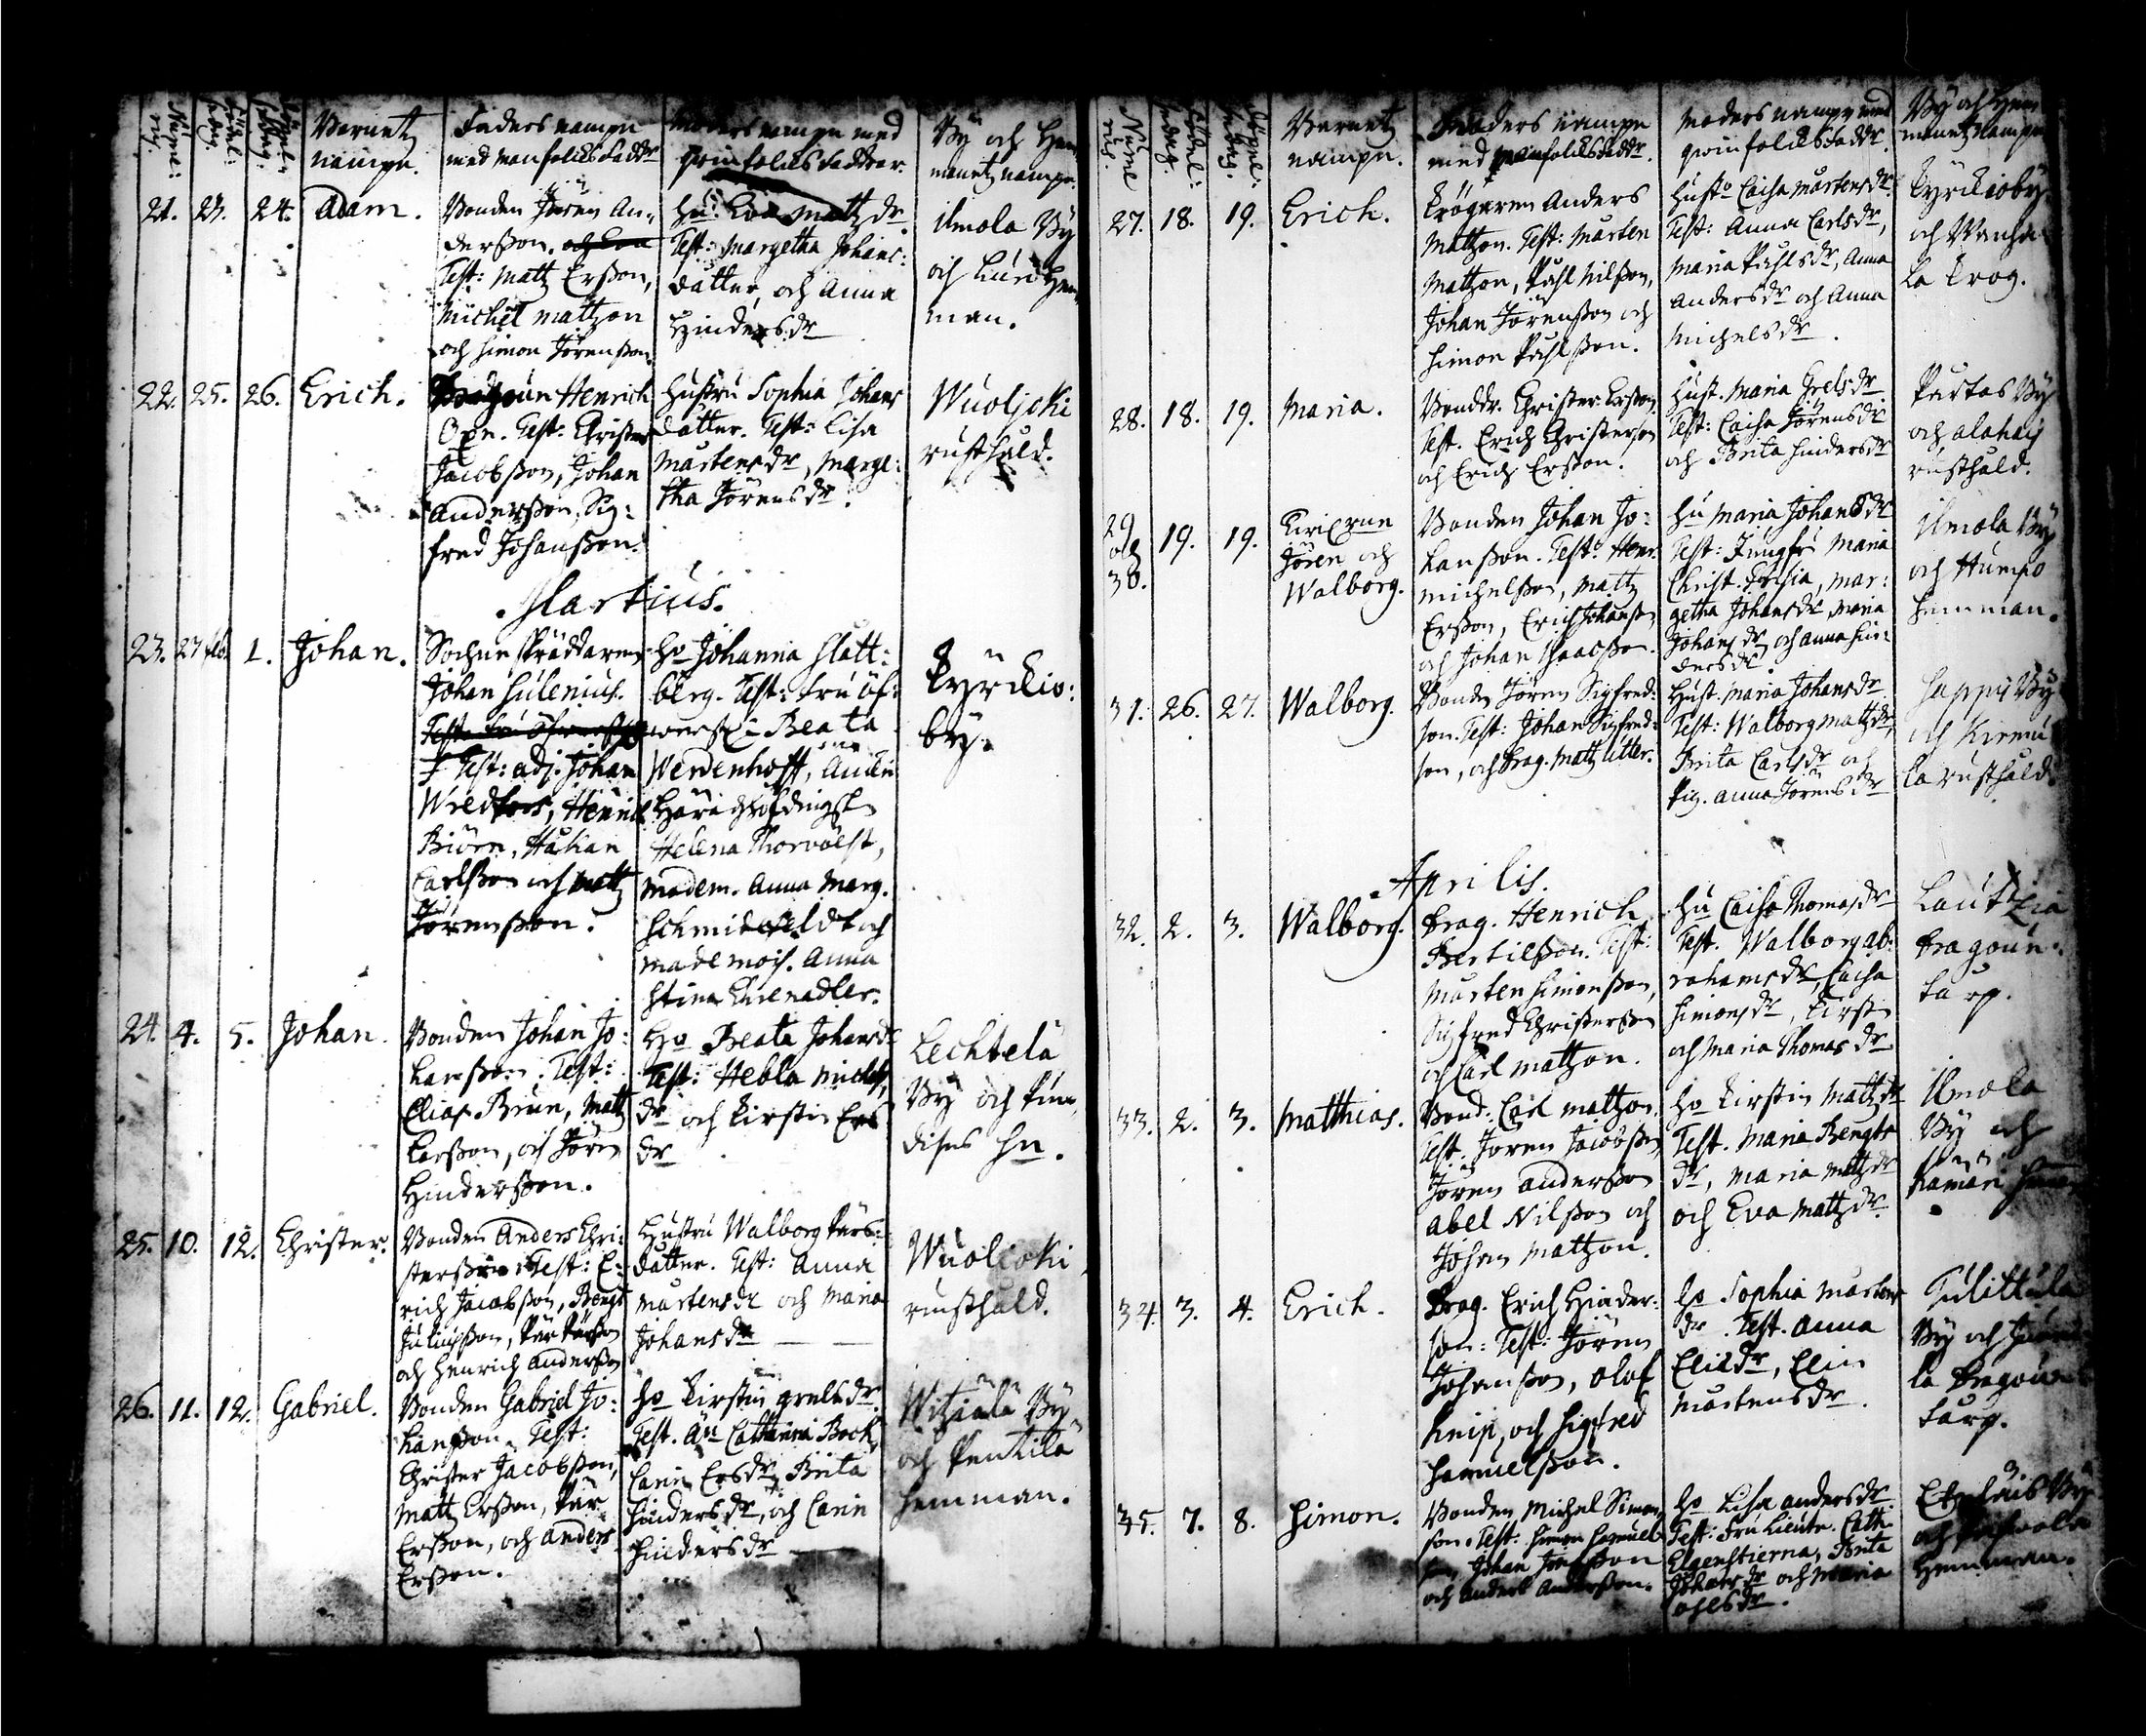 Nume: rus.
födel: sedag.
döpel: sedag.
Barnetz
nampn.
Faders nampn
med manfolcks faddr
Moders nampn med
qwinfolcks faddrar.
By och Hem
manetz nampn.
21. 23. 24. Adam.
Bonden Jören An-
dersson.
Test: Matz Ersson,
Michel Mattzon
och Simon Jörensson.
Hu: Eva Mattz dr
Test: Margetha Johans:
datter, och Anna
Hindersdr
Ilmola By
och Hem
man.
22. 25. 26. Erich.
Henrich
Test: Christer
Jacobsson, Johan
Andersson, Sig:
fred Johansson.
Hustru Sophia Johans
datter. Test: Lisa
Mårtensdr, Marge:
tha Jörensdr.
Wuojoki
rusthåld.
Martius.
23. 27 feb. 1. Johan.
Sochneskräddaren
Johan Sulenius.
Test: adj. Johan
Wredfors, Henrich
Biörn, Håkan
Carlsson och Matz
Jörensson.
Ho Johanna Slatt:
berg. Test: fru öf:
Beata
Werdenhoff,
Häradzhöfdingsk
Helena Thorwöst,
Madem. Anna Marg.
Schmidefeldt och
Mademois. Anna
Stina Ehrenadler.
Kyrckio:
by.
24. 4. 5. Johan.
Bonden Johan Jo:
hansson. Test:
Elias Brun, Matz
Larsson, och Jören
Hindersson.
Ho Beata Johansdr
Test: Hebla Michels
dr och Kirstin Ers
dr
Lechtelä
By och
25. 10. 12. Christer.
Bonden Anders Chri:
stersson Test: E:
rich Jacobsson, Bengt
och Henrich Andersson
Hustru Walborg Pärs:
datter. Test: Anna
Mårtensdr och Maria
Johansdr
Wuojoki
rusthåld.
26. 11. 12. Gabriel.
Bonden Gabriel Jo:
hansson. Test:
Christer Jacobsson,
Matz Ersson, Pär
Ersson, och Anders
Ersson.
Ho Kirstin Grelsdr.
Test. Catharina Bock,
Carin Ersdr, Brita
Hindersdr, och Carin
Hindersdr
By
och Pentilä
hemman.
Nume rus.
födel: sedag.
döpel: sedag.
Barnetz
nampn.
Faders nampn
med manfolcksfaddr.
Moders nampn med
qwinfolcksfaddr.
By och Hem
manetz nampn
27. 18. 19. Erich.
Krögaren Anders
Matzon. Test: Mårten
Matzon, Påhl Nilsson,
Johan Jörensson och
Simon Påhlsson.
Husto Caisa Mårtensdr
Test: Anna Carlsdr,
Maria Påhlsdr, Anna
Andersdr och Anna
Michelsdr.
Kyrckioby
och Wanha
la Krog.
28. 18. 19. Maria.
Christer Ersson.
Test. Erich Christersson
och Erich Ersson.
Hust. Maria Grelsdr
Test: Caisa Jörensdr
och Brita Hindersdr
Partas By
och
rusthåld.
29 och 30. 19. 19.
Jören och
Walborg.
Bonden Johan Jo:
hansson. Test: Henr.
Michelsson, Matz
Ersson, Erich Johanson
och Johan Isaacsson.
Hu Maria Johansdr
Test: Jungfr. Maria
Christ. Forsia, Mar:
getha Johansdr, Maria
Johansdr och Anna Hin:
dersdr
Ilmola By
och Humpo
hemman.
31. 26. 27. Walborg.
Bonden Jören Sigfred:
son. Test: Johan Sigfred:
son, och Drag. Matz Utter.
Hust. Maria Johansdr
Test: Walborg Matzdr,
Brita Carlsdr och
Pig. Anna Jörensdr
By
och
la rusthåld.
Aprilis.
32. 2. 3. Walborg.
Drag. Henrich
Bertilsson. Test:
Mårten Simonsson,
Sigfred Christersson
och Carl Matzon.
Hu Caisa Thomasdr
Test. Walborg Ab:
rahamsdr, Caisa
Simonsdr, Kirstin
och Maria Thomasdr
Lautkia
Dragoun:
torp.
33. 2. 3. Matthias.
Bond: Carl Matzon.
Test. Jören Jacobsson,
Jören Andersson
Abel Nilsson och
Johan Matzon.
Ho Kirstin Matzdr
Test. Maria Bengts
dr, Maria Matzdr
och Eva Matzdr
Ilmola
By och
34. 3. 4. Erich.
Drag. Erich Hinder:
son: Test: Jören
Johansson, Olof
Knip, och Sigfred
Samuelsson.
Ho Sophia Mårtens
dr. Test. Anna
Elisdr, Elin
Mårtensdr.
Tulittula
By och
la Dragoun
torp.
35. 7. 8. Simon.
Bonden Michel Simon
son. Test: Simon Samuel
son, Johan
och Anders Andersson.
Ho Lisa Andersdr
Test: Fru Lieutn. Cath.
Elgenstierna, Brita
Johansdr och Maria
Ohlsdr.
By
och
Hemman.